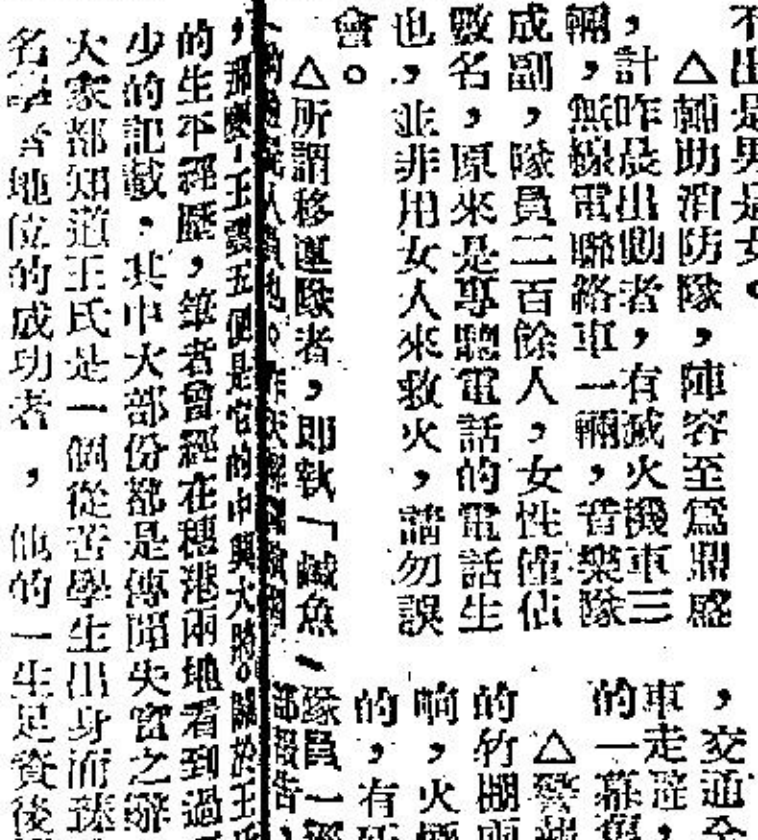 不出是男是女。
△輔助消防隊，陣容至爲鼎盛
，計昨晨出動者，有滅火機車三
輛，無線電聯絡車一輛，音樂隊
成副，隊員二百餘人，女性僅佔
數名，原來是專聽電話的電話生
也，並非用女人來救火，請勿誤
會。
△所謂移運隊者，即執「鹹魚」
，交通全
車走避，
的一幕
△
的竹棚
响，火
的，有
隊員一
部報告，
王雲五便是它的中興大將。關於王氏
的生平經歷，筆者曾經在穗港兩地看到過
少的記載，其中大部份都是傳聞失實之辭
大家都知道王氏是一個從苦學生出身而
名學者地位的成功者，他的一生足資後